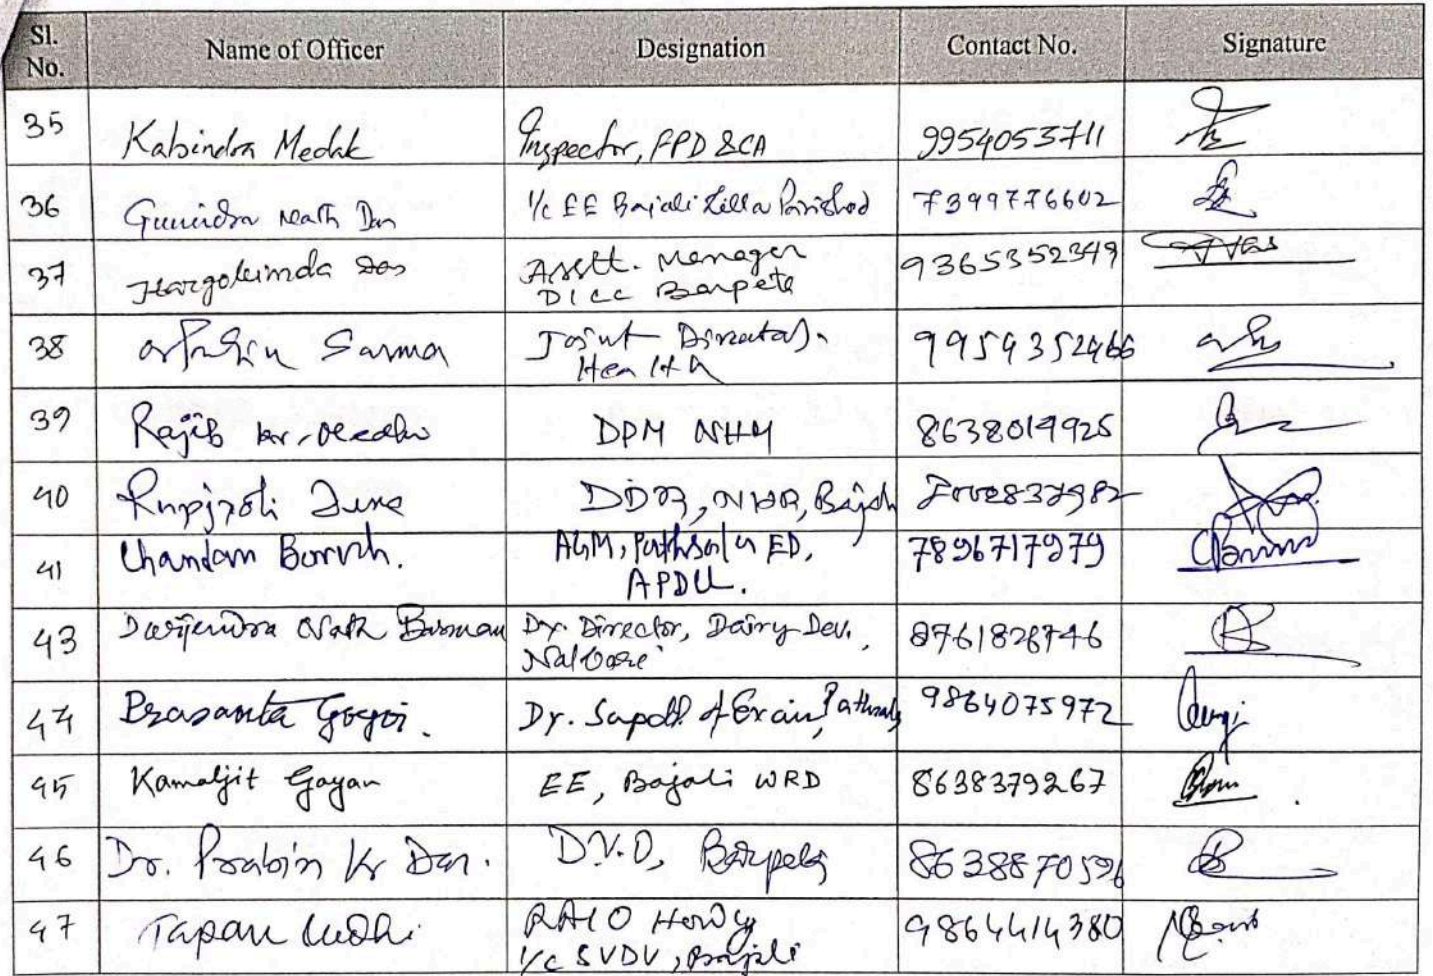 Sl. No. Name of Officer Designation Contact No. Signature
35 Kabindra Medhk Inspector, FPD &CA 9954053711
36 Gunindra Nath Das I/c EE Bajali Zilla Parishod 7399776602
37 Hargobinda Das Asstt. Manager 9365352349
DICC Barpeta
38 Sarma Joint Director. 9954352466
Health
39 Rajib kr. DPM NHM 8638014925
40 Rupjyoti
41 Chandan Boruah. AGM, Pathsala ED, 7896717979
APDCL.
43 Dwijendra Nath Barman Dy. Director, Dairy Dev. 8761828746
44 Prasanta Gogoi. Dy. Supdt. of Excise, Pathsala 9864075972
45 Kamaljit Gayan EE, Bajali WRD 8638379267
46 Dr. Prabin Kr Das. D.V.O, Barpeta 8638870596
47 Tapan 9864414380
I/c SVDV, Bajali